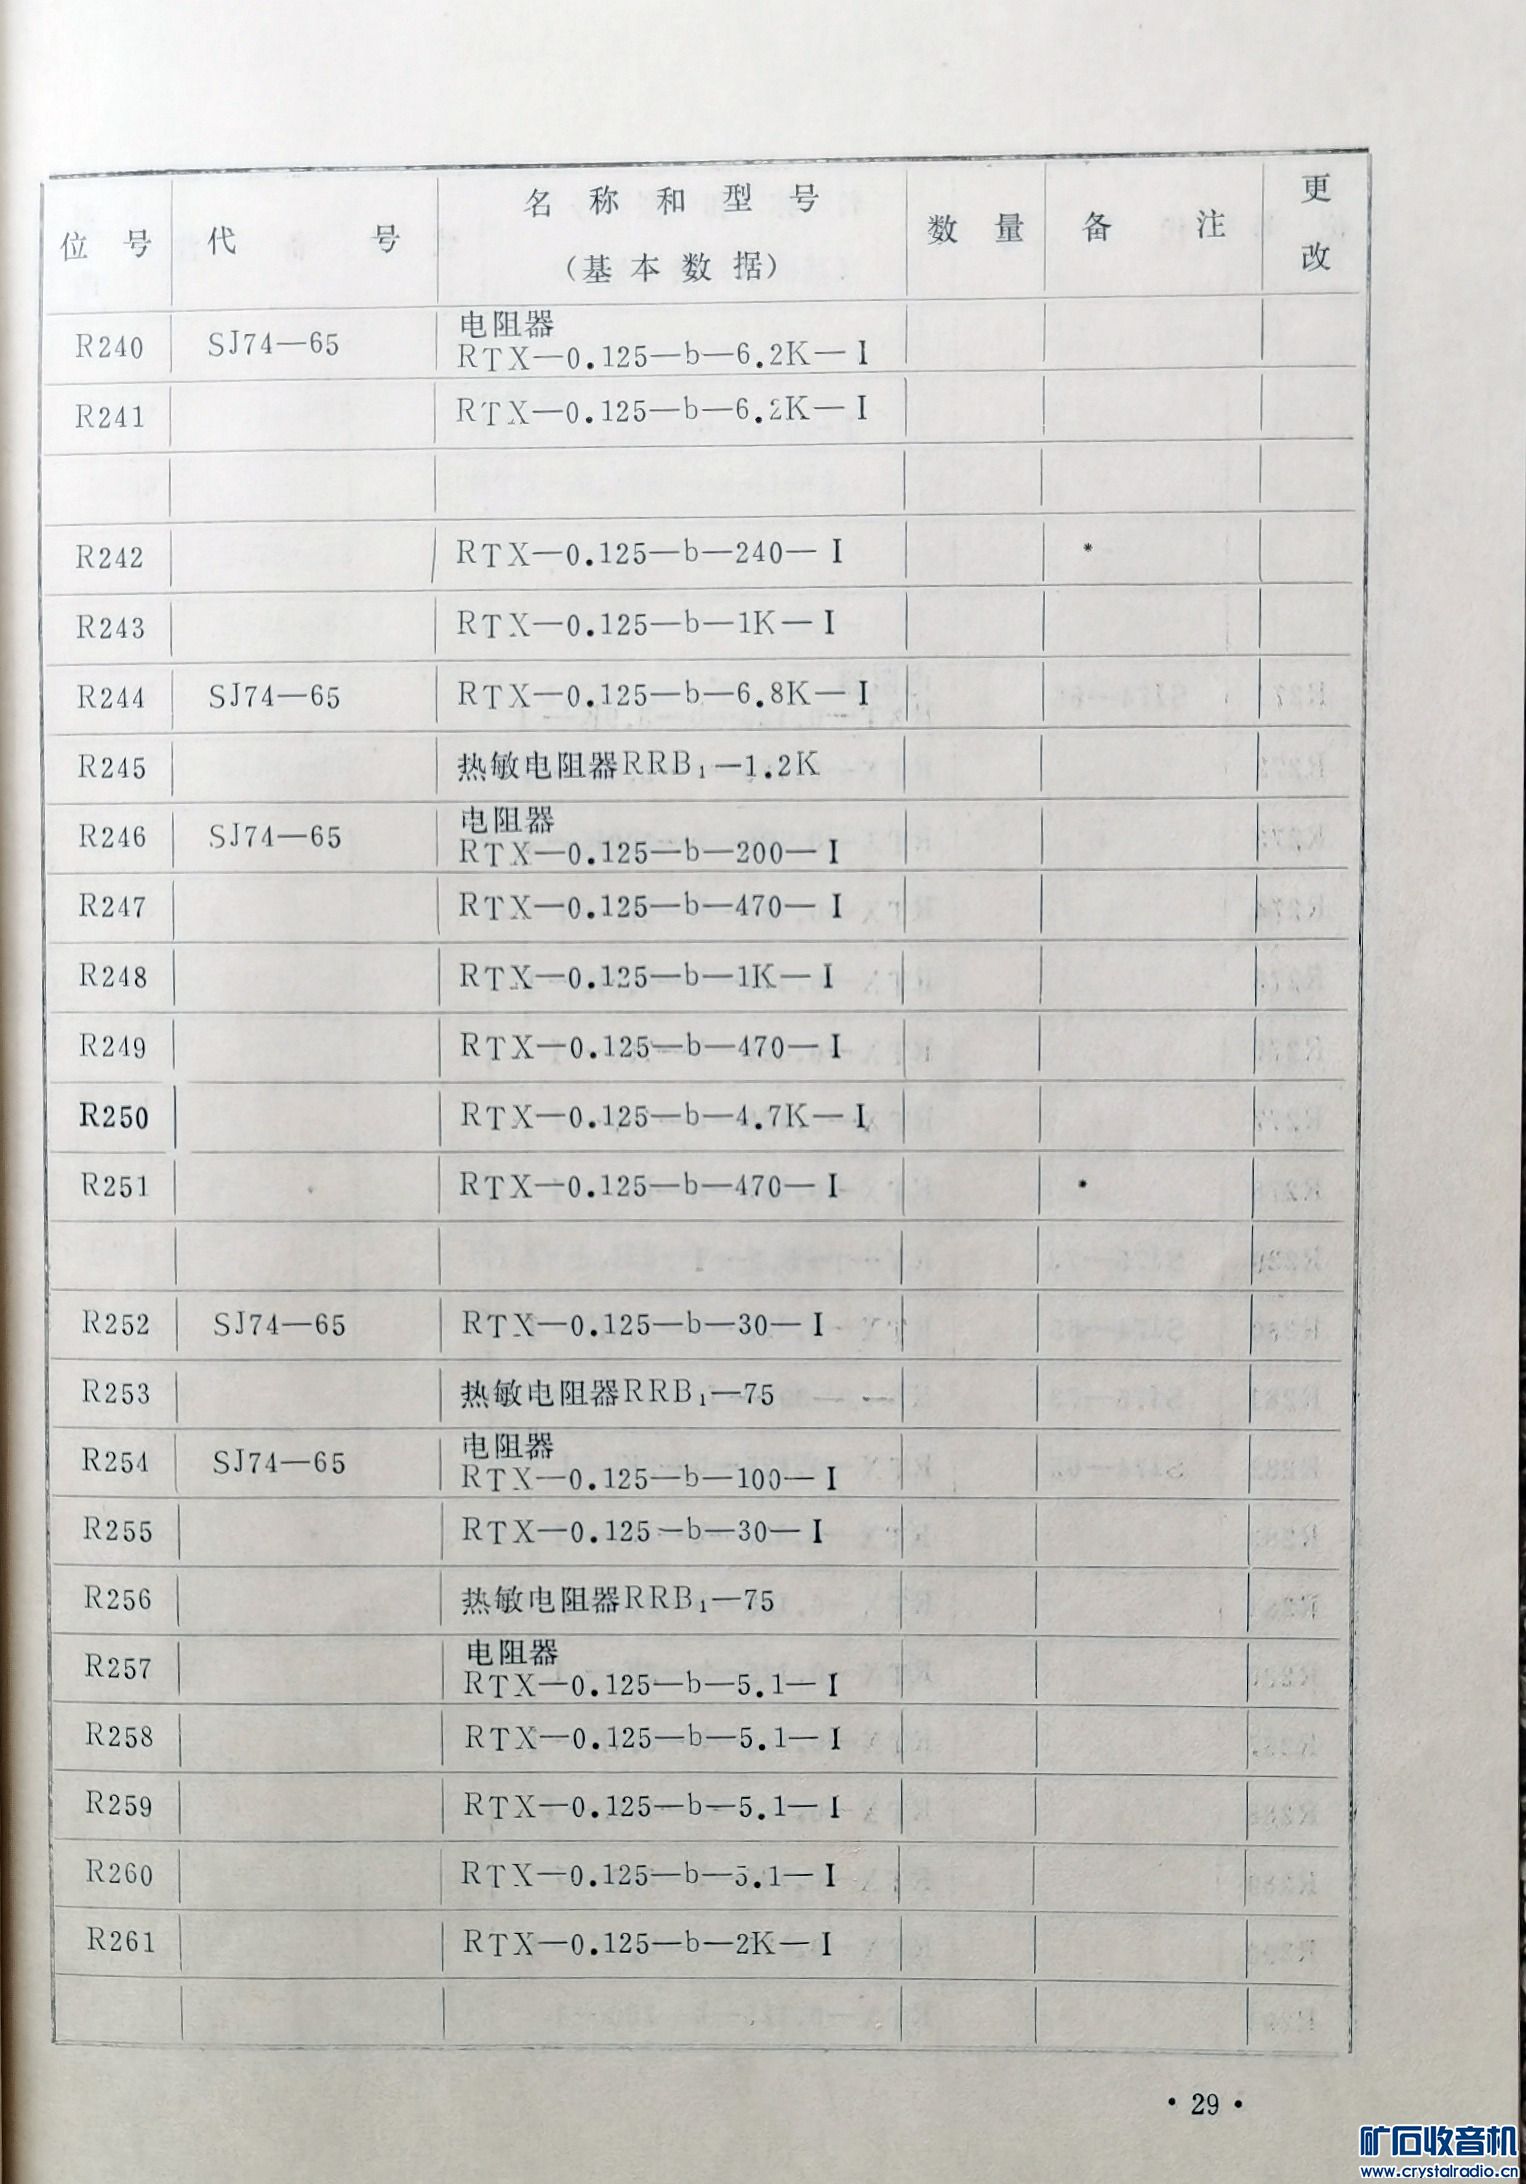 位号 代号 名称和型号 数量 备注 更改
(基本数据)
R240 SJ74—65 电阻器
RTX—0.125—b—6.2K—I
R241 RTX—0.125—b—6.2K—I
R242 RTX—0.125—b—240—I *
R243 RTX—0.125—b—1K—I
R244 SJ74—65 RTX—0.125—b—6.8K—I
R245 热敏电阻器RRB₁—1.2K
R246 SJ74—65 电阻器
RTX—0.125—b—200—I
R247 RTX—0.125—b—470—I
R248 RTX—0.125—b—1K—I
R249 RTX—0.125—b—470—I
R250 RTX—0.125—b—4.7K—I
R251 RTX—0.125—b—470—I *
R252 SJ74—65 RTX—0.125—b—30—I
R253 热敏电阻器RRB₁—75
R254 SJ74—65 电阻器
RTX—0.125—b—100—I
R255 RTX—0.125—b—30—I
R256 热敏电阻器RRB₁—75
R257 电阻器
RTX—0.125—b—5.1—I
R258 RTX—0.125—b—5.1—I
R259 RTX—0.125—b—5.1—I
R260 RTX—0.125—b—5.1—I
R261 RTX—0.125—b—2K—I
·29·
矿石收音机
www.crystalradio.cn